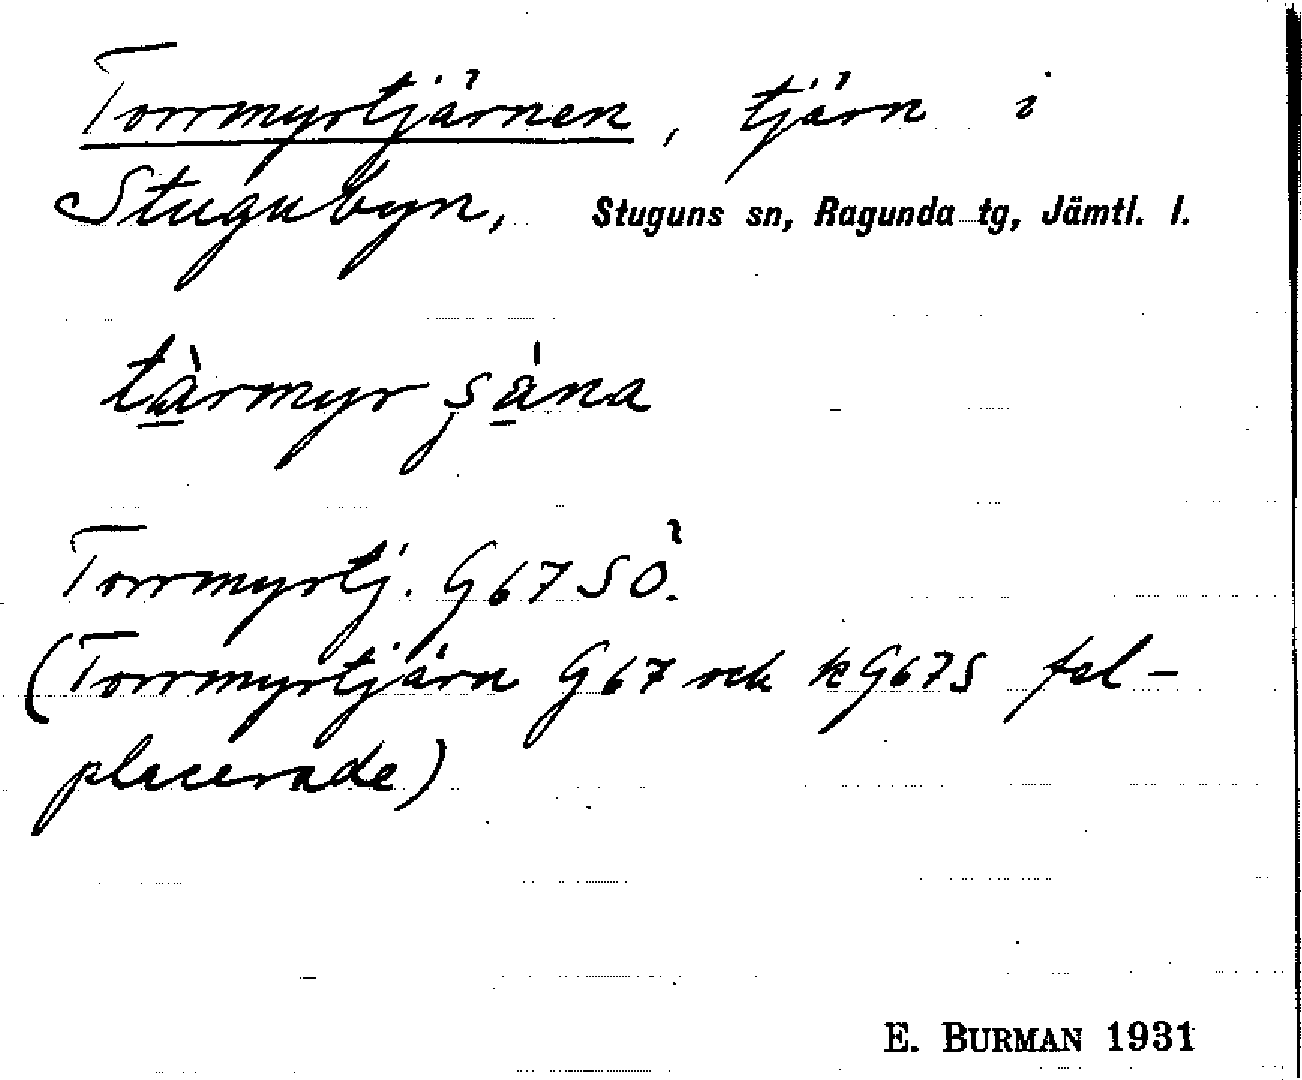 Torrmyrtjärnen, tjärn i
Stugubyn, Stuguns sn, Ragunda tg, Jämtl. l.
tàrmyr şána
Torrmyrtj. G67 SÖ.
(Torrmyrtjärn G67 och k G67S fel-
placerade)
E. BURMAN 1931